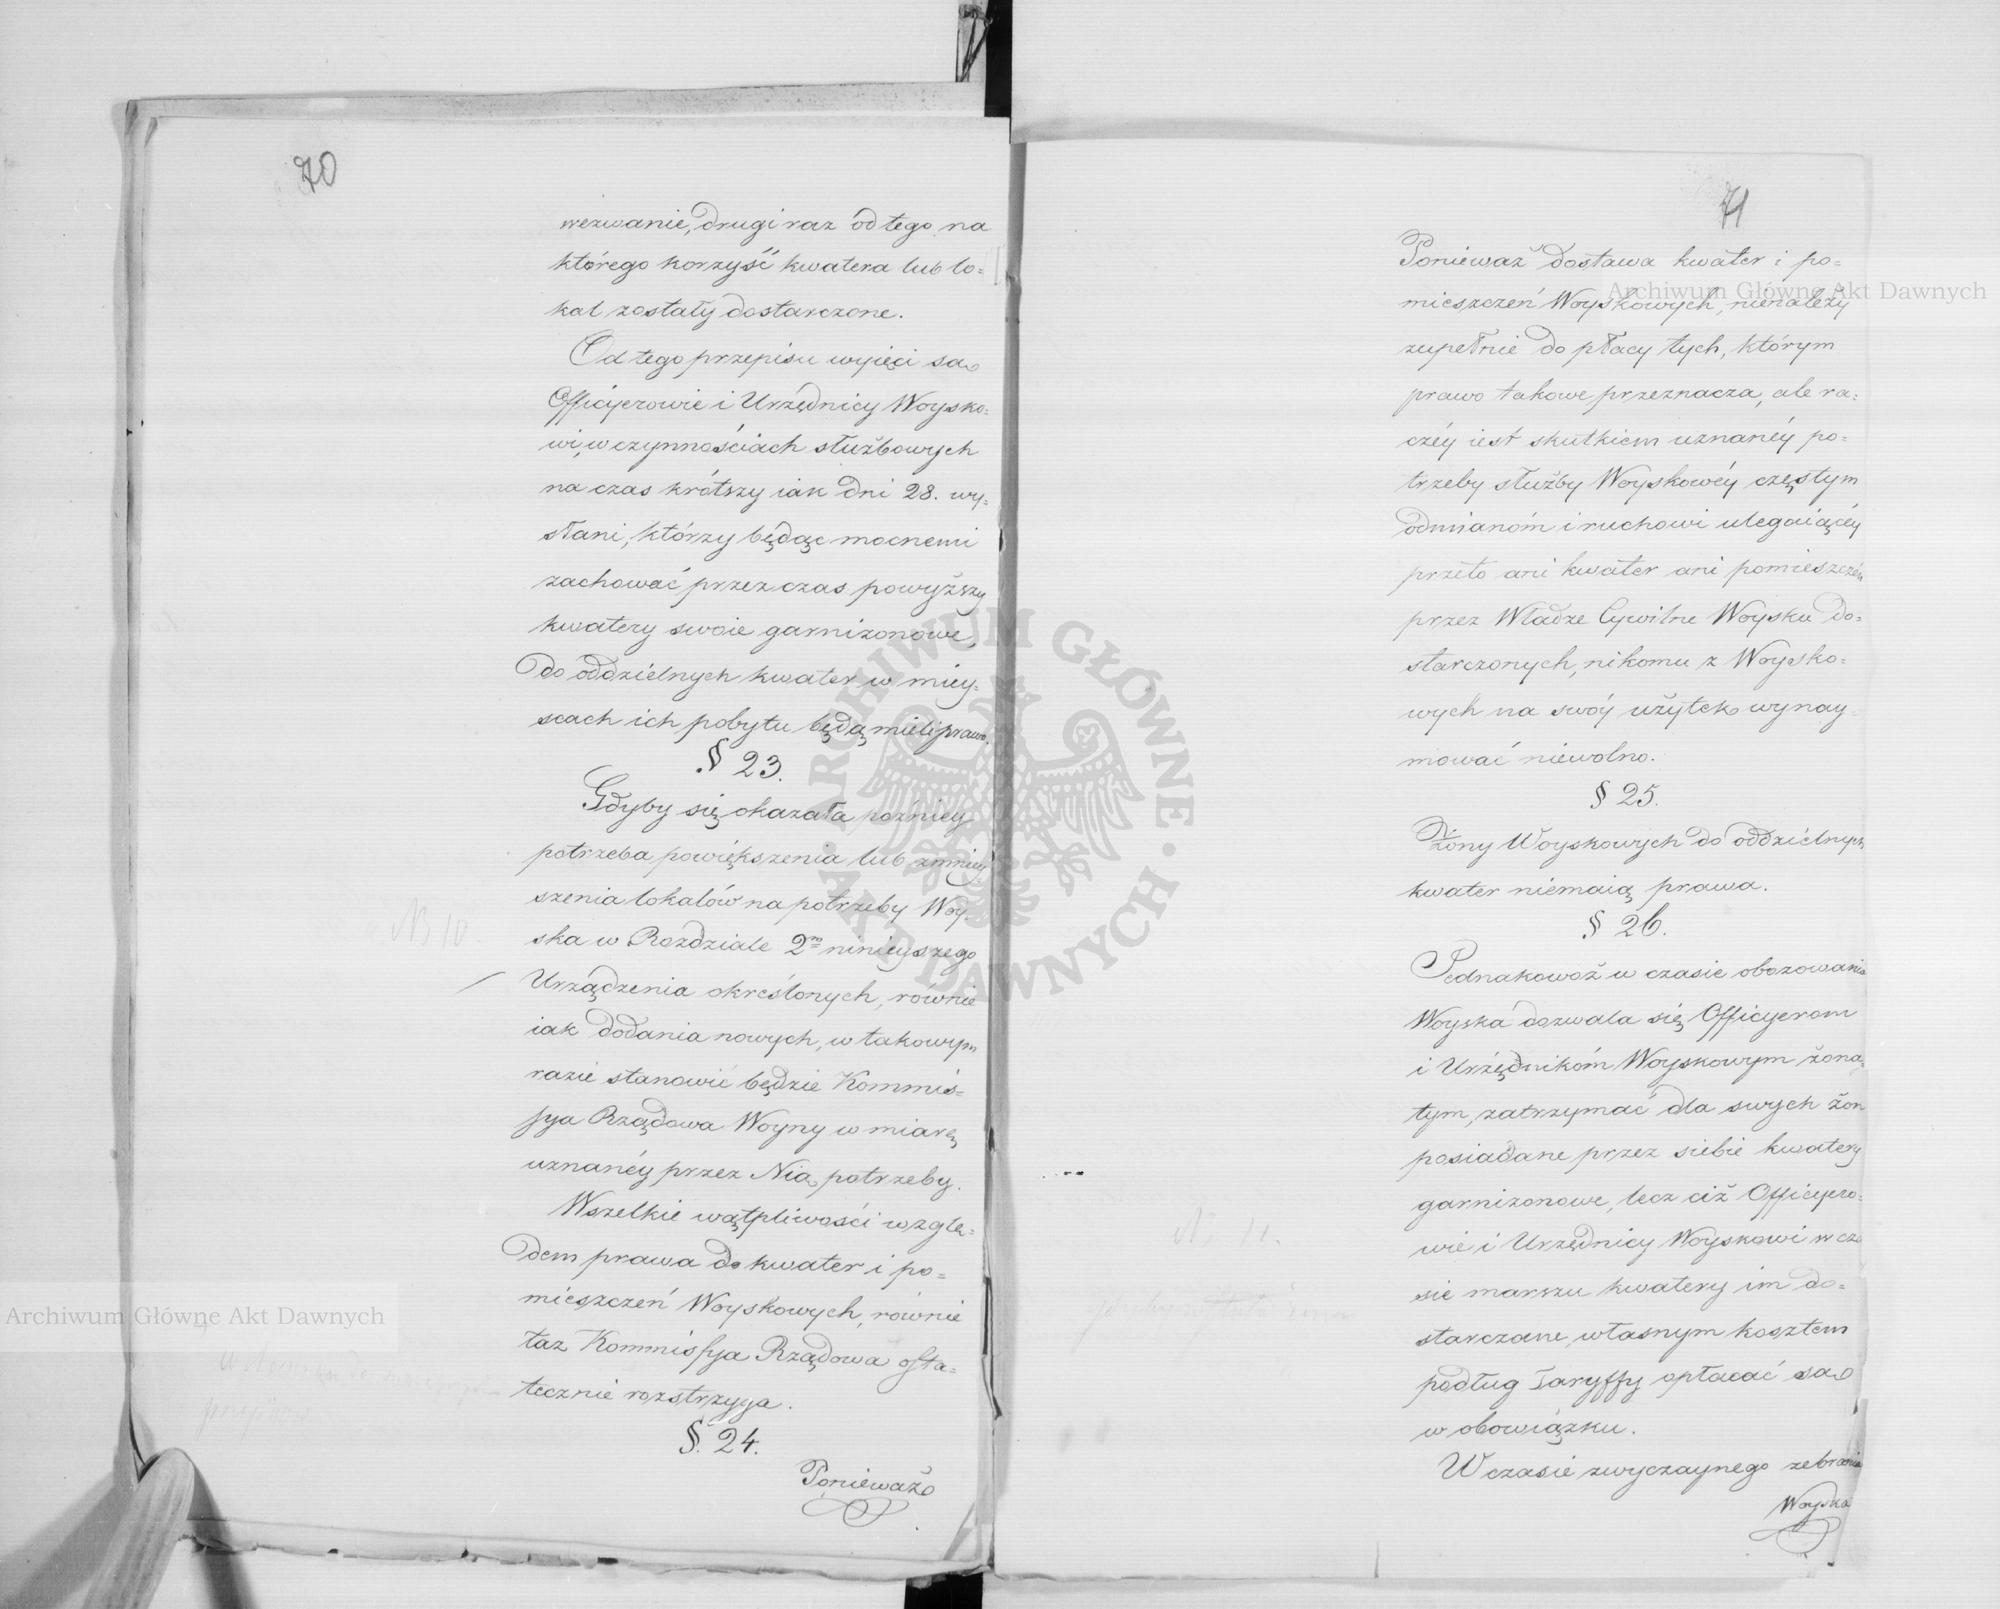 70
wezwanie, drugi raz od tego na
którego korzyść kwatera lub lo-
kal zostały dostarczone.
Od tego przepisu wyięci są
Officyerowie i Urzędnicy Woysko-
wi, w czynnościach służbowych
na czas krótszy iak dni 28. wy-
słani, którzy będąc mocnemi
zachować przez czas powyższy
kwatery swoie garnizonowe,
do oddzielnych kwater w miey-
scach ich pobytu będą mieli prawo.
§ 23.
Gdyby się okazała późniey
potrzeba powiększenia lub zmniey-
szenia lokalów na potrzeby Woy-
ska w Rozdziale 2m ninieyszego
Urządzenia określonych, równie
iak dodania nowych, w takowym
razie stanowić będzie Kommis-
sya Rządowa Woyny w miarę
uznanéy przez Nią potrzeby.
Wszelkie wątpliwości wzglę-
dem prawa do kwater i po-
mieszczeń Woyskowych, równie
taz Kommissya Rządowa osta-
tecznie rozstrzyga.
§. 24.
Ponieważ
NB 10.
71
Ponieważ dostawa kwater i po-
mieszczeń Woyskowych, nienależy
zupełnie do płacy tych, którym
prawo takowe przeznacza, ale ra-
czéy iest skutkiem uznanéy po-
trzeby służby Woyskowéy częstym
odmianóm i ruchowi ulegaiącéy
przeto ani kwater ani pomieszczeń
przez Władze Cywilne Woysku do-
starczonych, nikomu z Woysko-
wych na swóy użytek wynay-
mować niewolno.
§ 25.
Żony Woyskowych do oddzielnych
kwater niemaią prawa.
§ 26.
Jednakowoż w czasie obozowania
Woyska dozwala się Officyerom
i Urzędnikóm Woyskowym żona-
tym, zatrzymać dla swych żon
posiadane przez siebie kwatery
garnizonowe, lecz ciż Officyero-
wie i Urzędnicy Woyskowi w cza
sie marszu kwatery im do-
starczane, własnym kosztem
podług Taryffy opłacać są
w obowiązku.
W czasie zwyczaynego zebrania
Woyska
N 11.
Archiwum Główne Akt Dawnych
Archiwum Główne Akt Dawnych
ARCHIWUM GŁÓWNE · AKT DAWNYCH ·